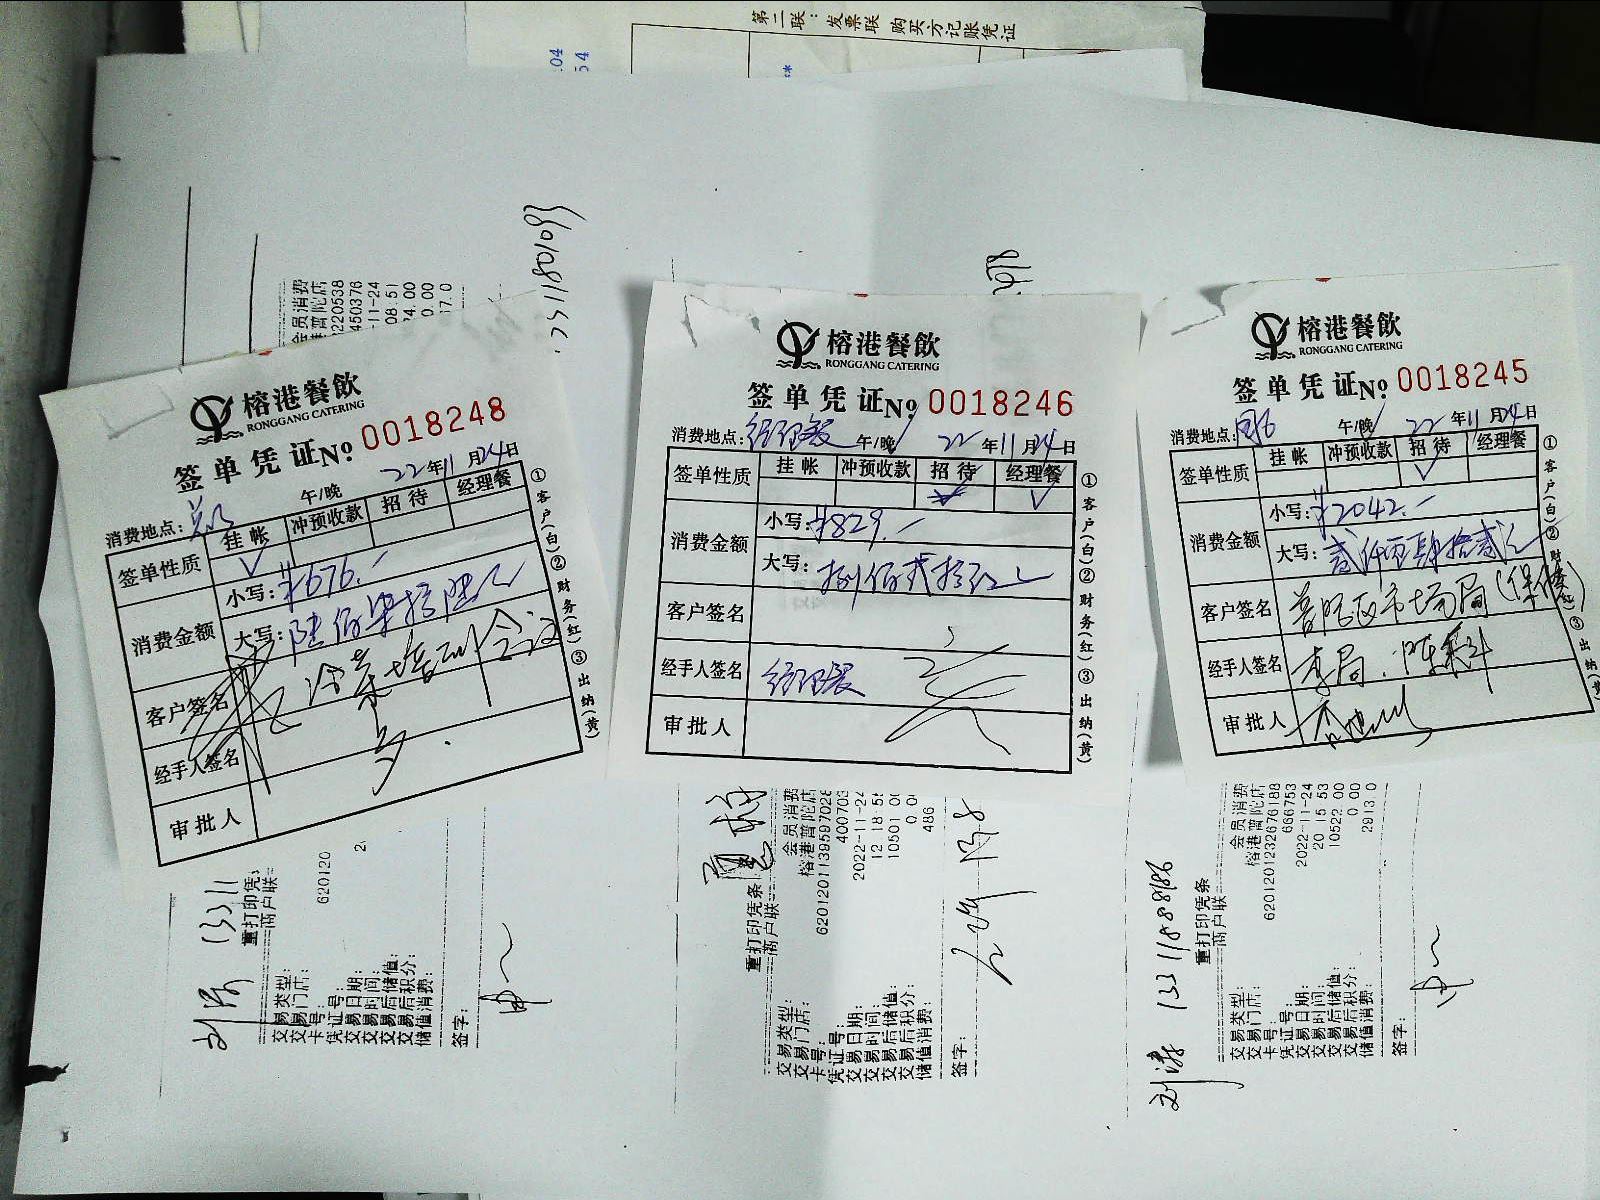 第二联：发票联 购买方记账凭证
04
54
**
2311801093
会员消费
港普陀店
8220538
450376
-11-24
08 51
24.00
0.00
17.0
榕港餐飲
RONGGANG CATERING
签单凭证№ 0018248
22年11月24日
消费地点：
午/晚
签单性质 挂帐 冲预收款 招待 经理餐
✓
消费金额 小写：¥676.—
大写：陆佰柒拾陆元
客户签名 冷菜培训会议
经手人签名
审批人
①客户(白)②财务(红)③出纳(黄)
榕港餐飲
RONGGANG CATERING
签单凭证№ 0018246
消费地点：经理餐 午/晚 22年11月24日
签单性质 挂帐 冲预收款 招待 经理餐
✓
消费金额 小写：¥829.—
大写：捌佰贰拾玖元
客户签名
经手人签名 经理餐
审批人
①客户(白)②财务(红)③出纳(黄)
榕港餐飲
RONGGANG CATERING
签单凭证№ 0018245
消费地点： 午/晚 22年11月24日
签单性质 挂帐 冲预收款 招待 经理餐
✓
消费金额 小写：¥2042.—
大写：贰仟零肆拾贰元
客户签名 普陀区市场局
经手人签名 李局.陈科
审批人
①客户(白)②财务(红)③出纳(黄)
13311
重打印凭
商户联
交易类型：
交易门店：
卡号： 620120
凭证号：
交易日期：
交易时间：
交易后储值：
交易后积分：
储值消费：
签字：
重打印凭条
商户联
交易类型： 会员消费
交易门店： 榕港普陀店
卡号： 6201201139597028
凭证号： 400703
交易日期： 2022-11-24
交易时间： 12 18 5
交易后储值： 10501 0
交易后积分： 0 0
储值消费： 486
签字：
刘涛 13311888986
重打印凭条
商户联
交易类型： 会员消费
交易门店： 榕港普陀店
卡号： 6201201232676188
凭证号： 666753
交易日期： 2022-11-24
交易时间： 20 15 53
交易后储值： 10522 00
交易后积分： 0 00
储值消费： 2913 0
签字：